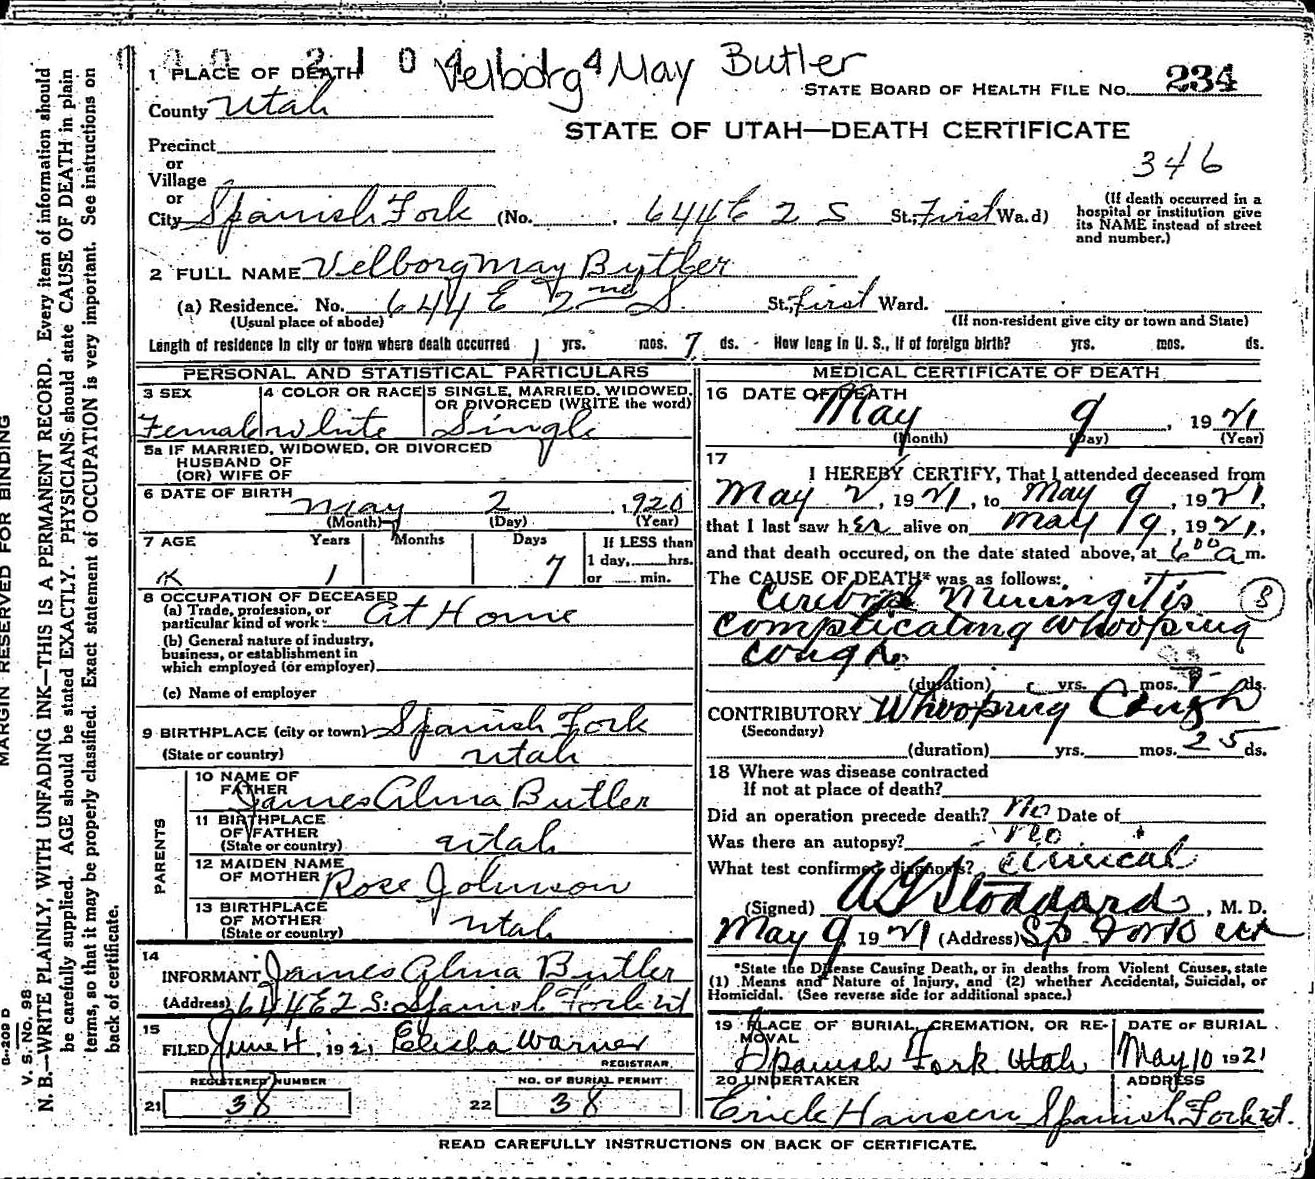 2 1 0 4
Velborg May Butler
1 PLACE OF DEATH
STATE BOARD OF HEALTH FILE No. 234
County Utah
STATE OF UTAH—DEATH CERTIFICATE
Precinct
346
or
Village
or
City Spanish Fork (No. 644 E 2 S St., First Wa.d)
(If death occurred in a
hospital or institution give
its NAME instead of street
and number.)
2 FULL NAME Velborg May Butler
(a) Residence. No. 644 E 2nd S. St., First Ward.
(Usual place of abode)
(If non-resident give city or town and State)
Length of residence in city or town where death occurred 1 yrs. mos. 7 ds. - How long in U. S., if of foreign birth? yrs. mos. ds.
PERSONAL AND STATISTICAL PARTICULARS
3 SEX
Female
4 COLOR OR RACE
White
5 SINGLE, MARRIED, WIDOWED,
OR DIVORCED (WRITE the word)
Single
5a IF MARRIED, WIDOWED, OR DIVORCED
HUSBAND OF
(OR) WIFE OF
6 DATE OF BIRTH
May 2, 1920
(Month) (Day) (Year)
7 AGE Years Months Days If LESS than
1 day, hrs.
or min.
1 7
8 OCCUPATION OF DECEASED
(a) Trade, profession, or
particular kind of work: At Home
(b) General nature of industry,
business, or establishment in
which employed (or employer)
(c) Name of employer
9 BIRTHPLACE (city or town) Spanish Fork
(State or country) Utah
PARENTS
10 NAME OF
FATHER James Alma Butler
11 BIRTHPLACE
OF FATHER
(State or country) Utah
12 MAIDEN NAME
OF MOTHER Rose Johnson
13 BIRTHPLACE
OF MOTHER
(State or country) Utah
14
INFORMANT James Alma Butler
(Address) 644 E 2 S. Spanish Fork Ut
15
FILED June 4, 1921 Elisha Warner
REGISTRAR.
REGISTERED NUMBER
21 38
NO. OF BURIAL PERMIT
22 38
MEDICAL CERTIFICATE OF DEATH
16 DATE OF DEATH
May 9, 1921
(Month) (Day) (Year)
17
I HEREBY CERTIFY, That I attended deceased from
May 2, 1921, to May 9, 1921,
that I last saw her alive on May 9, 1921,
and that death occured, on the date stated above, at 6 00 a m.
The CAUSE OF DEATH* was as follows:
Cerebral Meningitis 8
complicating whooping
cough
(duration) yrs. mos. ds.
CONTRIBUTORY Whooping Cough
(Secondary)
(duration) yrs. mos. 25 ds.
18 Where was disease contracted
If not at place of death?
Did an operation precede death? No Date of
Was there an autopsy? No
What test confirmed diagnosis? Clinical
(Signed) A J Stoddard, M. D.
May 9 1921 (Address) Sp Fork Ut
*State the Disease Causing Death, or in deaths from Violent Causes, state
(1) Means and Nature of Injury, and (2) whether Accidental, Suicidal, or
Homicidal. (See reverse side for additional space.)
19 PLACE OF BURIAL, CREMATION, OR RE-
MOVAL
Spanish Fork Utah
DATE OF BURIAL
May 10 1921
20 UNDERTAKER
Erick Hansen
ADDRESS
Spanish Fork Ut.
READ CAREFULLY INSTRUCTIONS ON BACK OF CERTIFICATE.
MARGIN RESERVED FOR BINDING
V. S. No. 98
B-209 D
N. B.—WRITE PLAINLY, WITH UNFADING INK—THIS IS A PERMANENT RECORD. Every item of information should
be carefully supplied. AGE should be stated EXACTLY. PHYSICIANS should state CAUSE OF DEATH in plain
terms, so that it may be properly classified. Exact statement of OCCUPATION is very important. See instructions on
back of certificate.